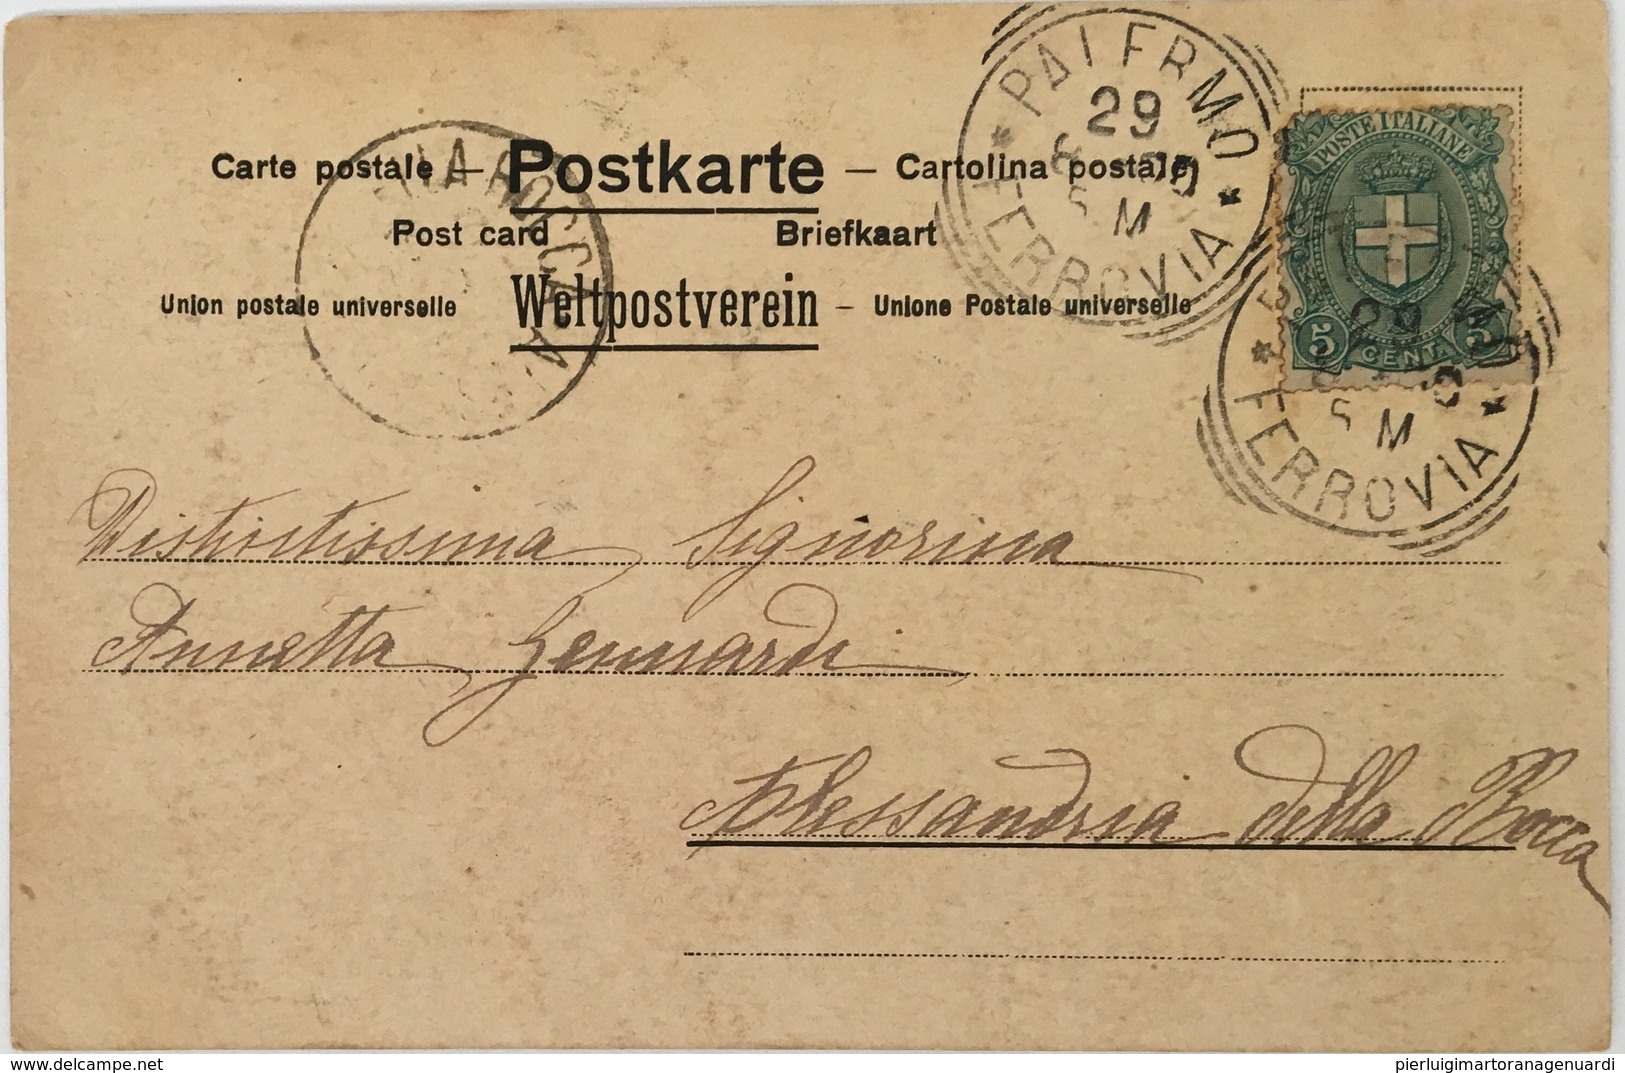 Carte postale – Postkarte – Cartolina postale
Post card Briefkaart
Union postale universelle Weltpostverein – Unione Postale universelle
PALERMO
29
8
S M
* FERROVIA *
POSTE ITALIANE
5 CENT. 5
29
S M
* FERROVIA *
LLA ROCCA
Distintissima Signorina
Annetta Gennardi
Alessandria della Rocca
delcampe.net
pierluigimartoranagenuardi